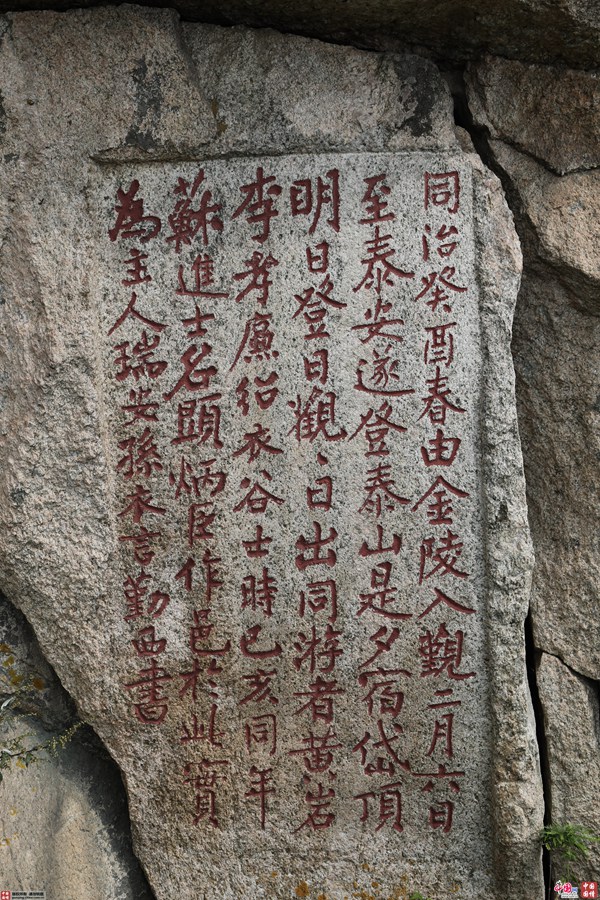 同治癸酉春由金陵入觐二月六日
至泰安遂登泰山是夕宿岱頂
明日登日觀〻日出同游者黄岩
李孝廉紹衣谷士時己亥同年
蘇進士名顯炳臣作邑於此實
為主人瑞安孫衣言勤西書